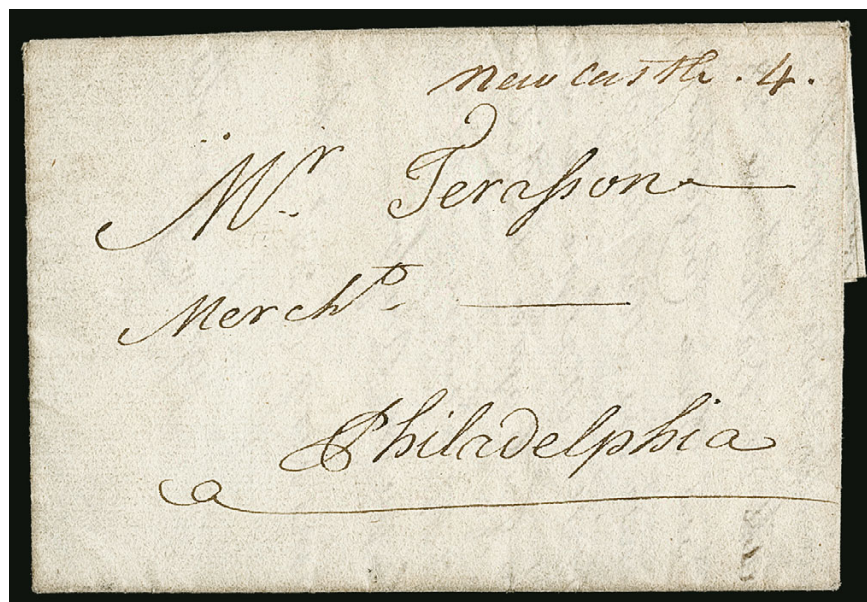 New Castle . 4 .
Mr. Terasson
Mercht.
Philadelphia